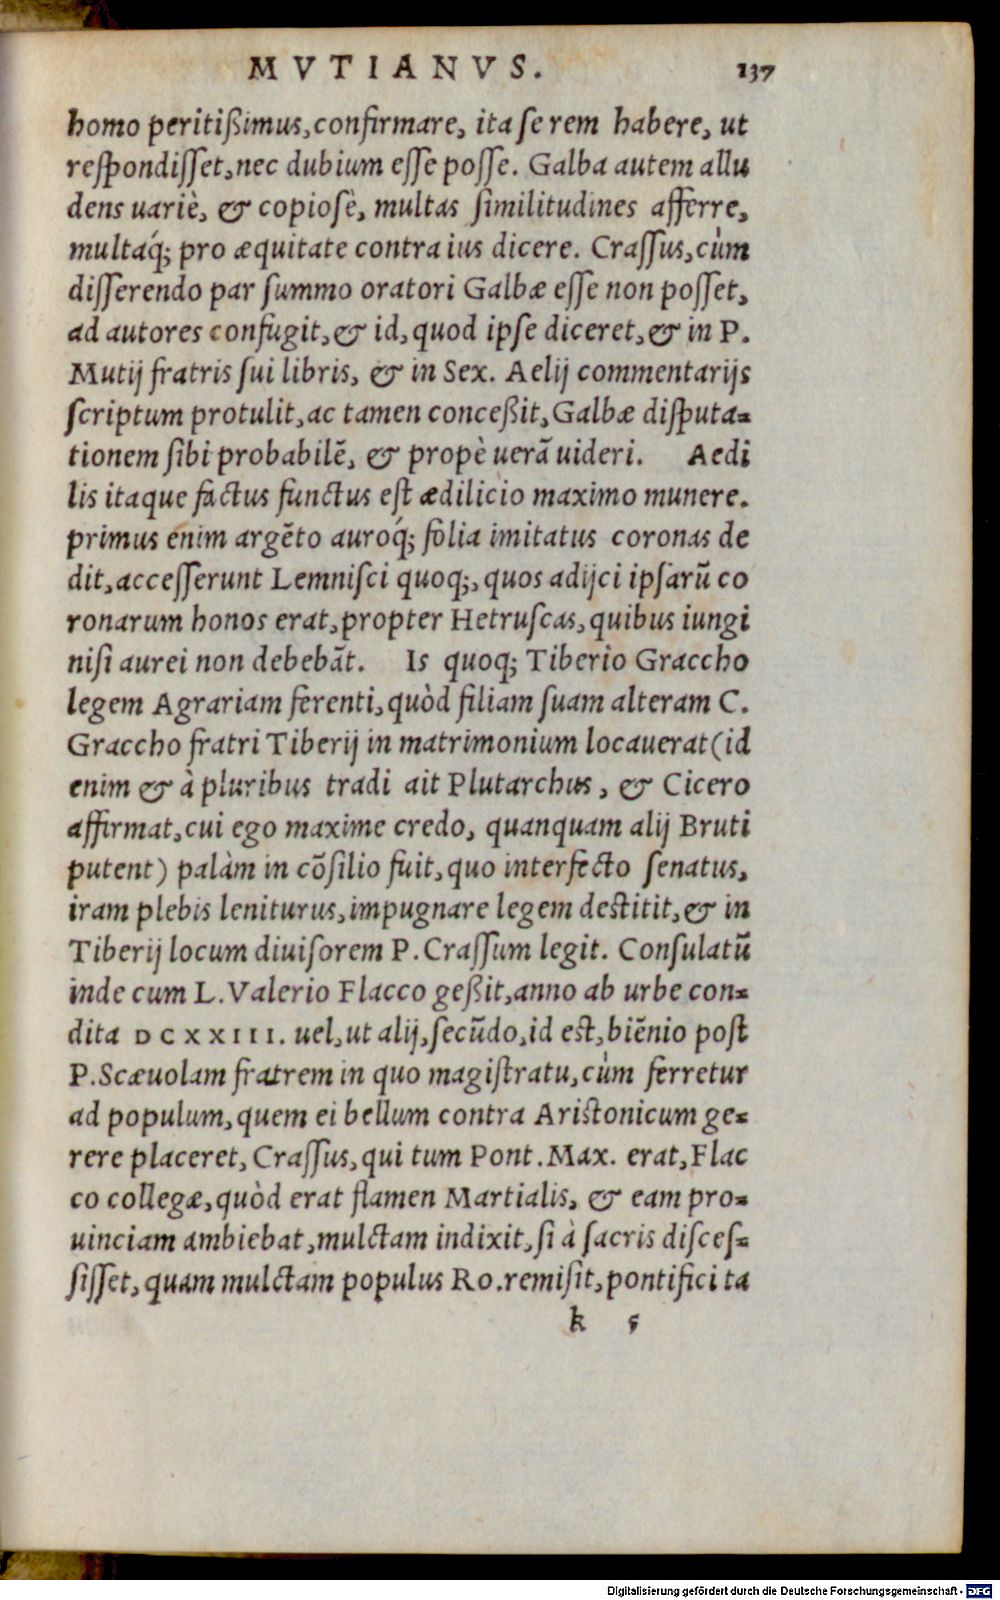 MVTIANVS. 137
homo peritißimus, confirmare, ita se rem habere, ut
respondisset, nec dubium esse posse. Galba autem allu
dens uariè, & copiosè, multas similitudines afferre,
multaq́; pro æquitate contra ius dicere. Crassus, cùm
disserendo par summo oratori Galbæ esse non posset,
ad autores confugit, & id, quod ipse diceret, & in P.
Mutij fratris sui libris, & in Sex. Aelij commentarijs
scriptum protulit, ac tamen conceßit, Galbæ disputa=
tionem sibi probabilẽ, & propè uerã uideri. Aedi
lis itaque factus functus est ædilicio maximo munere.
primus enim argẽto auroq́; folia imitatus coronas de
dit, accesserunt Lemnisci quoq;, quos adijci ipsarũ co
ronarum honos erat, propter Hetruscas, quibus iungi
nisi aurei non debebãt. Is quoq; Tiberio Graccho
legem Agrariam ferenti, quòd filiam suam alteram C.
Graccho fratri Tiberij in matrimonium locauerat (id
enim & à pluribus tradi ait Plutarchus, & Cicero
affirmat, cui ego maxime credo, quanquam alij Bruti
putent) palàm in cõsilio fuit, quo interfecto senatus,
iram plebis leniturus, impugnare legem destitit, & in
Tiberij locum diuisorem P. Crassum legit. Consulatũ
inde cum L. Valerio Flacco geßit, anno ab urbe con=
dita DCXXIII. uel, ut alij, secũdo, id est, biẽnio post
P. Scæuolam fratrem in quo magistratu, cùm ferretur
ad populum, quem ei bellum contra Aristonicum ge=
rere placeret, Crassus, qui tum Pont. Max. erat, Flac
co collegæ, quòd erat flamen Martialis, & eam pro=
uinciam ambiebat, mulctam indixit, si à sacris disces=
sisset, quam mulctam populus Ro. remisit, pontifici ta
k 5
Digitalisierung gefördert durch die Deutsche Forschungsgemeinschaft - DFG